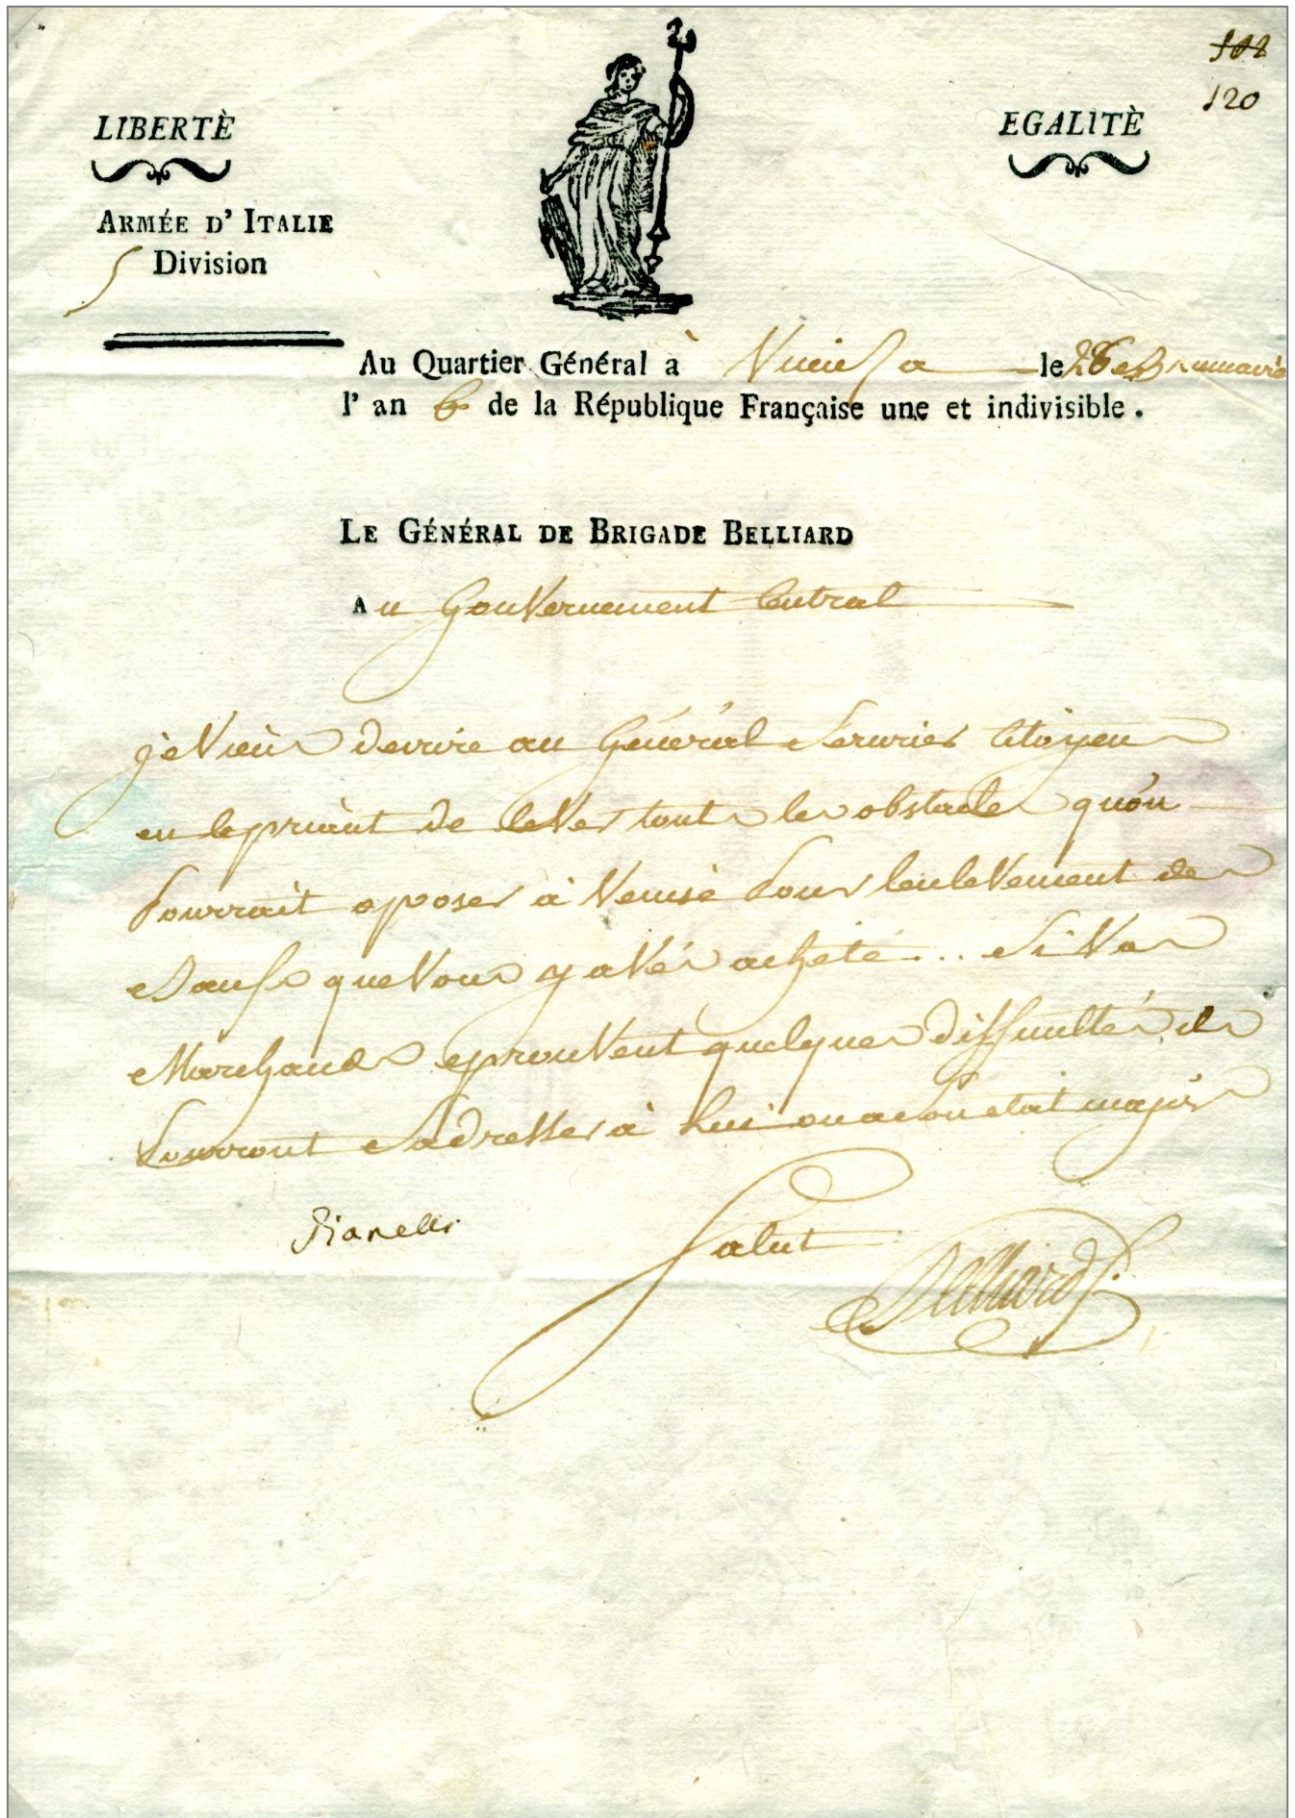 502
120
LIBERTÈ
EGALITÈ
ARMÉE D' ITALIE
5 Division
Au Quartier Général à le 26 e Brumaire
l' an 6 de la République Française une et indivisible .
LE GÉNÉRAL DE BRIGADE BELLIARD
Au Gouvernement Central
je viens decrire au Général Serurier Citoyens
en le priant de lever touts les obstacles quon
pourrait oposer à Venise pour lenlevement des
Bœufs que vous y avés acheté... Si vos
Marchands eprouvent quelques difficultés ils
pourront sadresser à lui ou a son etat major
Salut
Belliard